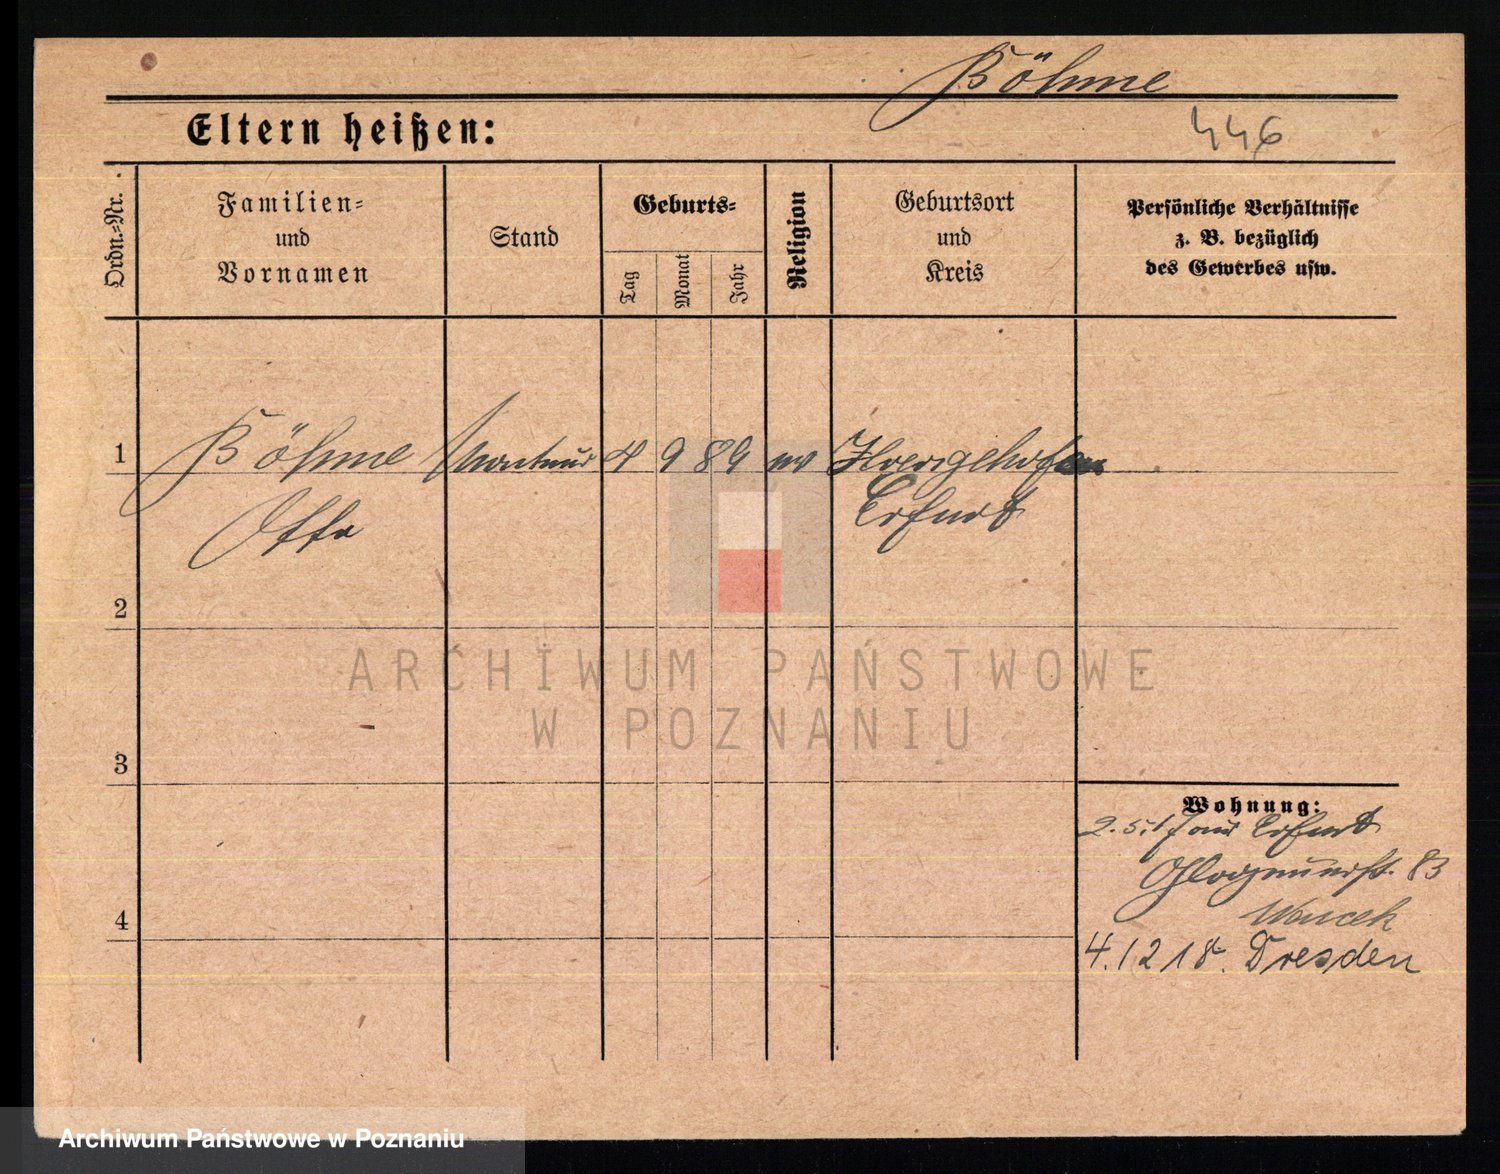 Böhme
Eltern heißen:
446
Ordn.=Nr.
Familien=
und
Vornamen
Stand
Geburts=
Tag
Monat
Jahr
Religion
Geburtsort
und
Kreis
Persönliche Verhältnisse
z. B. bezüglich
des Gewerbes usw.
1
Böhme Monteur 4 9 89 ev
Otto Erfurt
2
3
4
Wohnung:
2.5.17 aus Erfurt
83
4.12 18. Dresden
ARCHIWUM PAŃSTWOWE
W POZNANIU
Archiwum Państwowe w Poznaniu